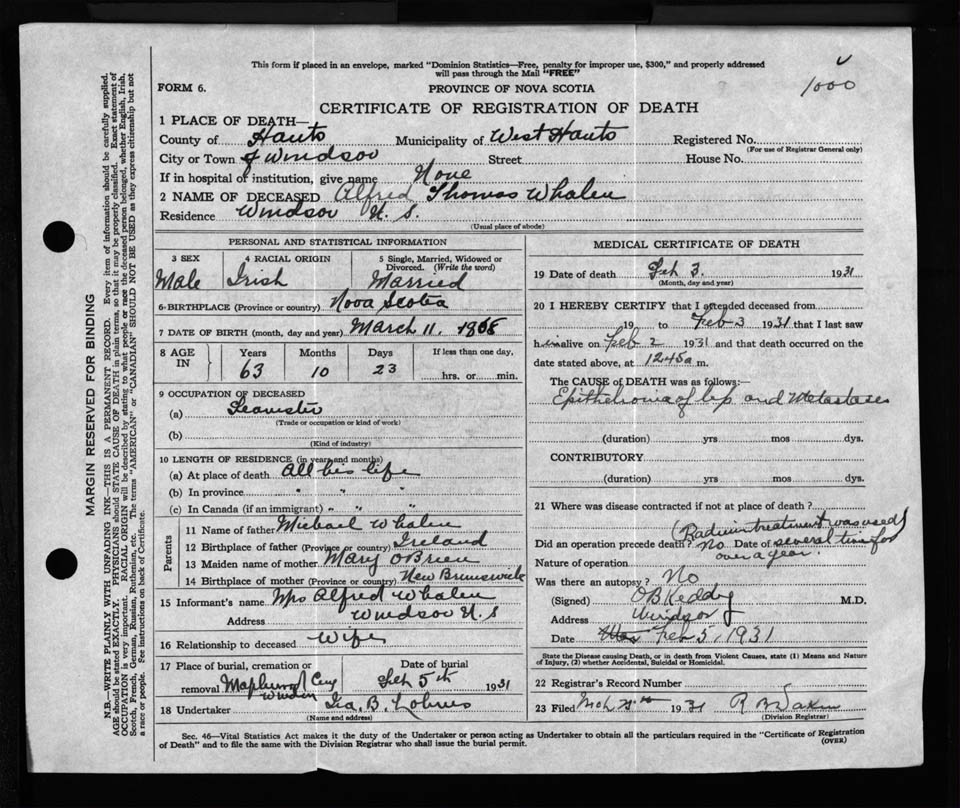 This form if placed in an envelope, marked "Dominion Statistics—Free, penalty for improper use, $300," and properly addressed
will pass through the Mail "FREE"
1000
FORM 6.
PROVINCE OF NOVA SCOTIA
CERTIFICATE OF REGISTRATION OF DEATH
1 PLACE OF DEATH—
County of Hants Municipality of West Hants Registered No.
(For use of Registrar General only)
City or Town of Windsor Street House No.
If in hospital or institution, give name None
2 NAME OF DECEASED Alfred Thomas Whalen
Residence Windsor N. S.
(Usual place of abode)
PERSONAL AND STATISTICAL INFORMATION
3 SEX 4 RACIAL ORIGIN 5 Single, Married, Widowed or Divorced. (Write the word)
Male Irish Married
6-BIRTHPLACE (Province or country) Nova Scotia
7 DATE OF BIRTH (month, day and year) March 11. 1868
8 AGE IN Years Months Days If less than one day,
63 10 23 hrs. or min.
9 OCCUPATION OF DECEASED
(a) Teamster
(Trade or occupation or kind of work)
(b)
(Kind of industry)
10 LENGTH OF RESIDENCE (in years and months)
(a) At place of death All his life
(b) In province " " "
(c) In Canada (if an immigrant) " " "
Parents
11 Name of father Michael Whalen
12 Birthplace of father (Province or country) Ireland
13 Maiden name of mother Mary O'Brien
14 Birthplace of mother (Province or country) New Brunswick
15 Informant's name Mrs Alfred Whalen
Address Windsor N. S
16 Relationship to deceased Wife
17 Place of burial, cremation or removal Date of burial
Cem Windsor Feb 5th 1931
18 Undertaker Ira. B.
(Name and address)
MEDICAL CERTIFICATE OF DEATH
19 Date of death Feb 3. 1931
(Month, day and year)
20 I HEREBY CERTIFY that I attended deceased from
19 to Feb 3 1931 that I last saw
him alive on Feb 2 1931 and that death occurred on the
date stated above, at 12 45 a m.
The CAUSE OF DEATH was as follows:—
Epithelioma of lip and Metastases
(duration) yrs mos. dys.
CONTRIBUTORY
(duration) yrs mos dys.
21 Where was disease contracted if not at place of death?
(Radium treatment was used
Did an operation precede death? No Date of several times for
over a year.
Nature of operation
Was there an autopsy? No
(Signed) O B Keddy M.D.
Address Windsor
Date Feb 5, 1931
State the Disease causing Death, or in death from Violent Causes, state (1) Means and Nature
of Injury, (2) whether Accidental, Suicidal or Homicidal.
22 Registrar's Record Number
23 Filed 1931 R B
(Division Registrar)
Sec. 46—Vital Statistics Act makes it the duty of the Undertaker or person acting as Undertaker to obtain all the particulars required in the "Certificate of Registration
of Death" and to file the same with the Division Registrar who shall issue the burial permit.
(OVER)
MARGIN RESERVED FOR BINDING
N.B.—WRITE PLAINLY WITH UNFADING INK—THIS IS A PERMANENT RECORD. Every item of information should be carefully supplied.
AGE should be stated EXACTLY. PHYSICIANS should STATE CAUSE OF DEATH in plain terms, so that it may be properly classified. Exact statement of
OCCUPATION is very important. RACIAL ORIGIN will be described by stating to what people or race the deceased person belonged, whether English, Irish,
Scotch, French, German, Russian, Ruthenian, etc. The terms "AMERICAN" or "CANADIAN" SHOULD NOT BE USED as they express citizenship but not
a race or people. See instructions on back of Certificate.